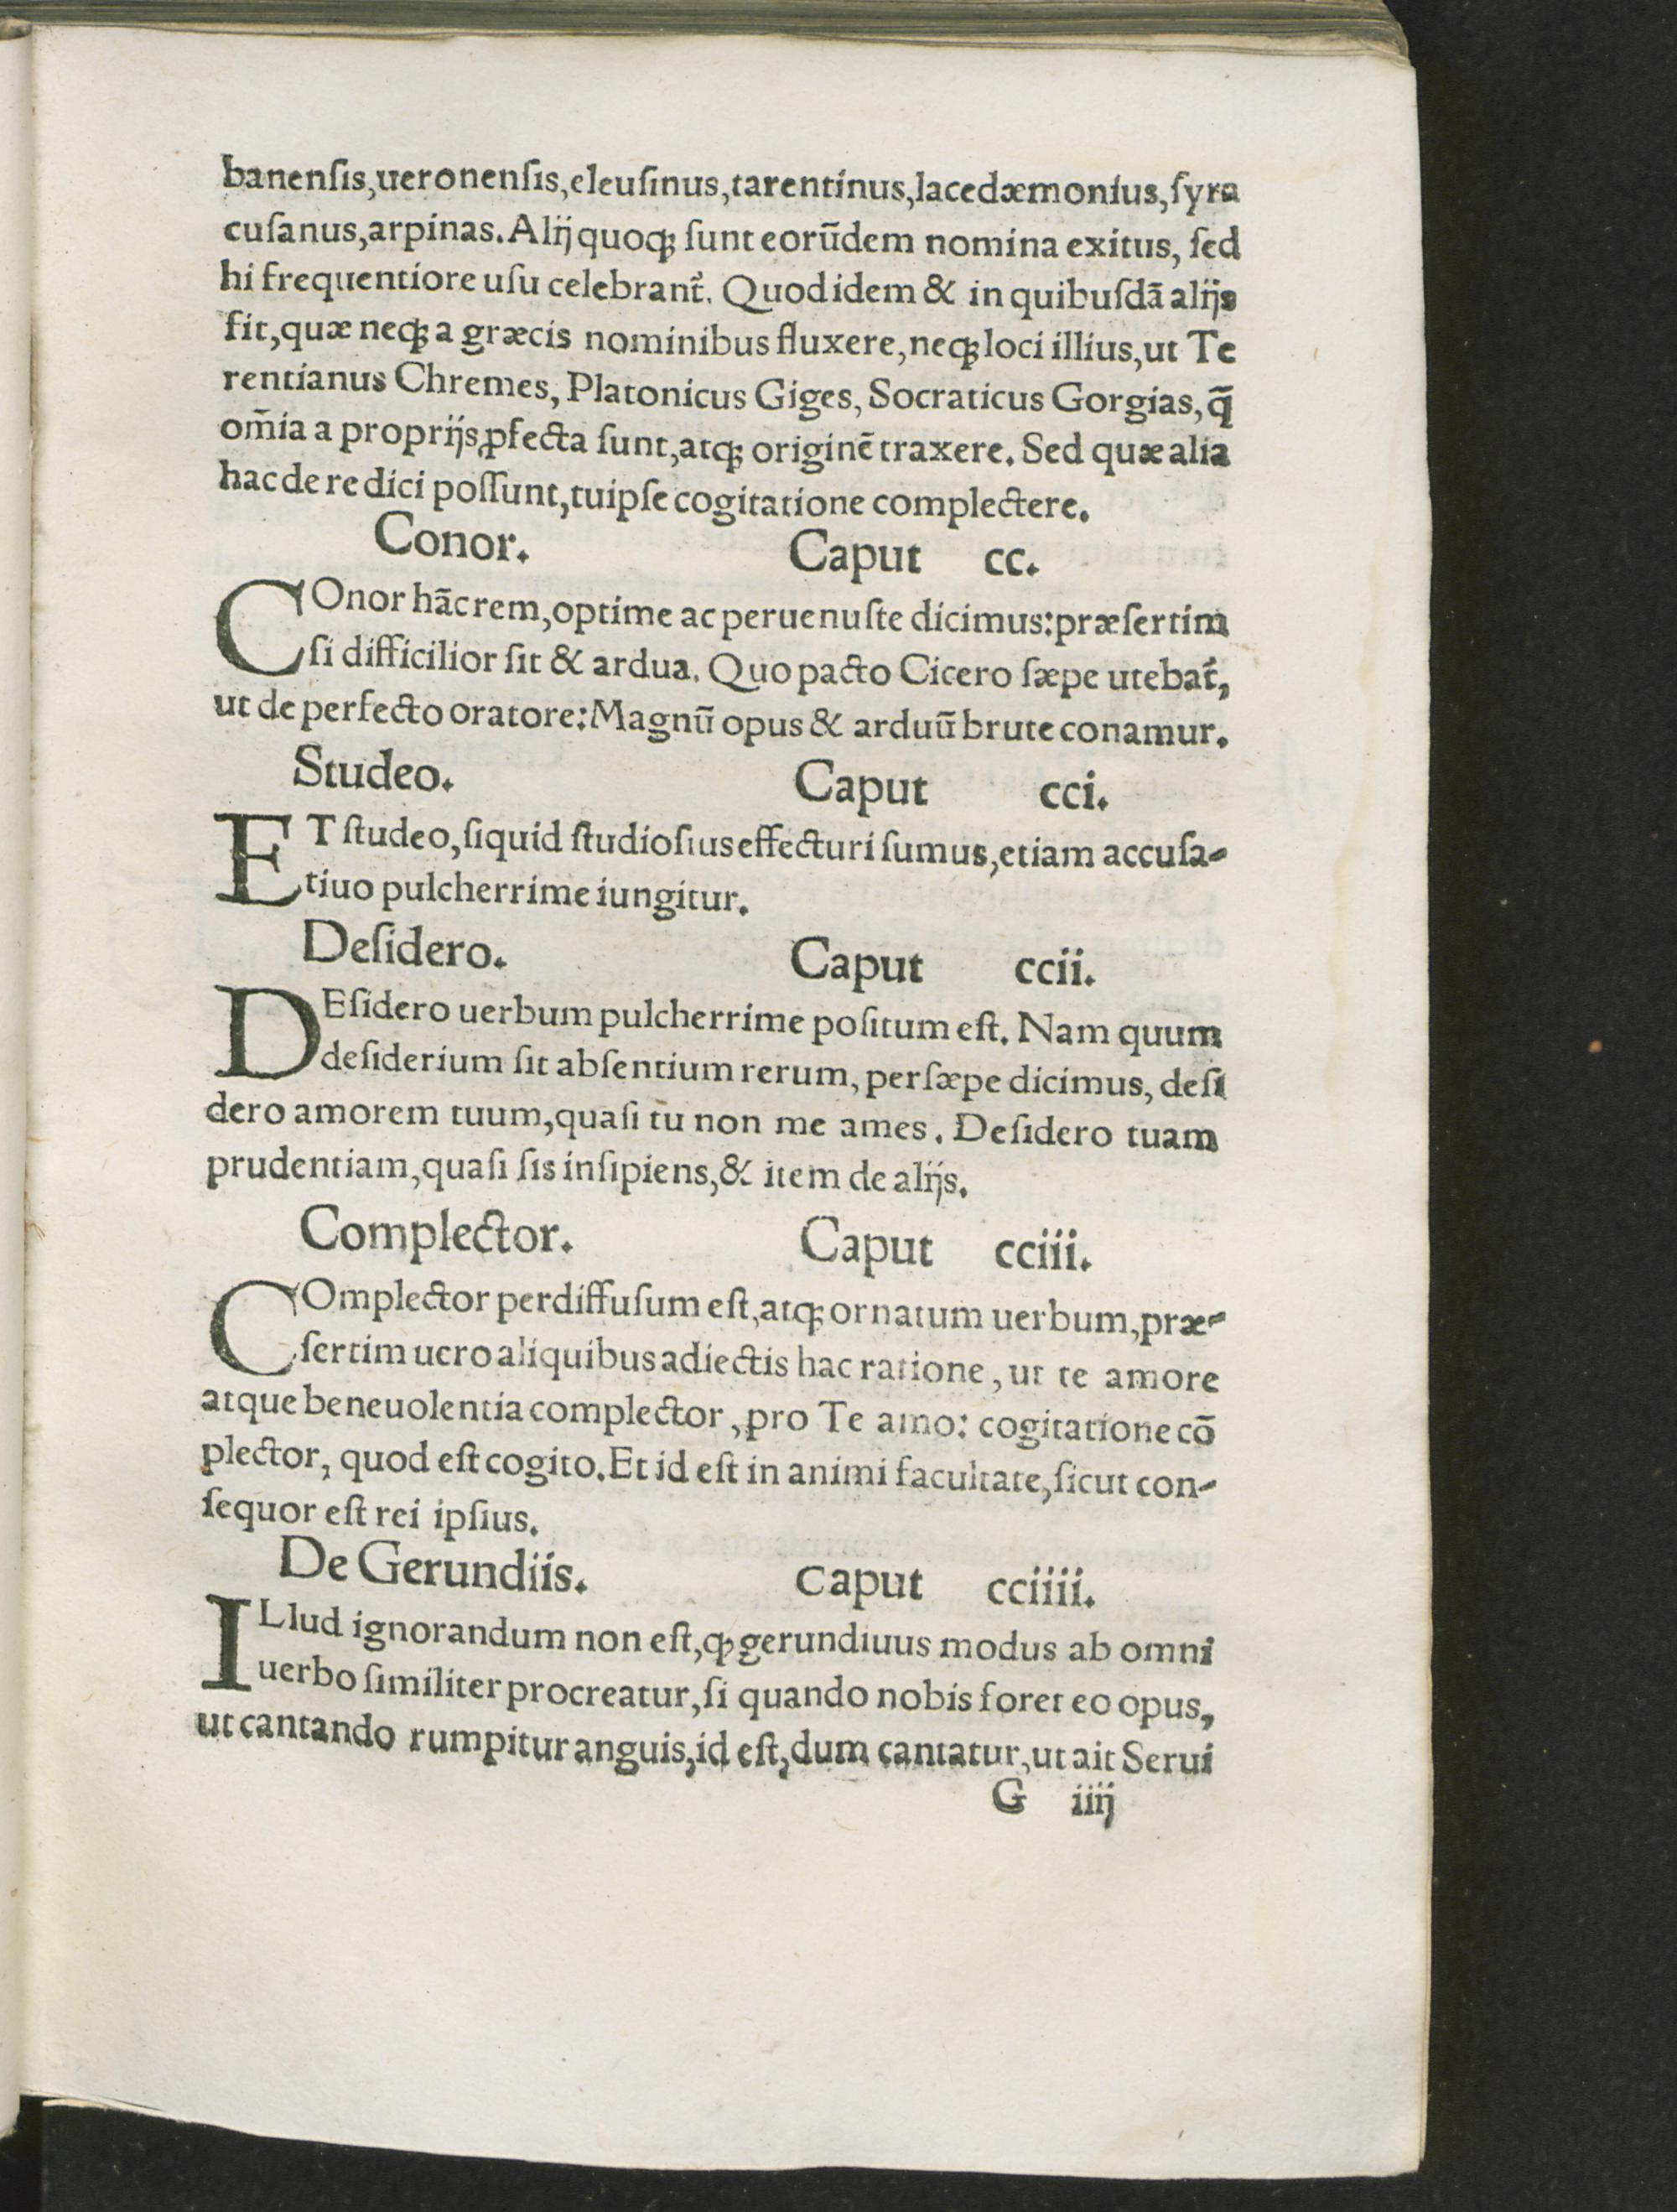 banenſis,ueronenſis,eleuſinus,tarentinus,lacedæmonius,ſyra
cuſanus,arpinas.Alij quoqꝫ ſunt eorūdem nomina exitus, ſed
hi frequentiore uſu celebrant᷑. Quod idem & in quibuſdā alijs
fit,quæ neqꝫ a græcis nominibus fluxere,neqꝫ loci illius,ut Te
rentianus Chremes, Platonicus Giges, Socraticus Gorgias,q̄
om̄ia a proprijs ꝓfecta ſunt,atqꝫ originē traxere. Sed quæ alia
hac de re dici poſſunt,tuipſe cogitatione complectere.
Conor. Caput cc.
COnor hāc rem,optime ac peruenuſte dicimus:præſertim
ſi difficilior ſit & ardua. Quo pacto Cicero ſæpe utebat᷑,
ut de perfecto oratore:Magnū opus & arduū brute conamur.
Studeo. Caput cci.
ET ſtudeo,ſiquid ſtudioſius effecturi ſumus,etiam accuſa-
tiuo pulcherrime iungitur.
Deſidero. Caput ccii.
DEſidero uerbum pulcherrime poſitum eſt. Nam quum
deſiderium ſit abſentium rerum, perſæpe dicimus, deſi
dero amorem tuum,quaſi tu non me ames. Deſidero tuam
prudentiam,quaſi ſis inſipiens,& item de alijs.
Complector. Caput cciii.
COmplector perdiffuſum eſt,atqꝫ ornatum uerbum,præ-
ſertim uero aliquibus adiectis hac ratione, ut te amore
atque beneuolentia complector, pro Te amo: cogitatione cō
plector, quod eſt cogito. Et id eſt in animi facultate,ſicut con-
ſequor eſt rei ipſius.
De Gerundiis. Caput cciiii.
ILlud ignorandum non eſt,ꝙ gerundiuus modus ab omni
uerbo ſimiliter procreatur,ſi quando nobis foret eo opus,
ut cantando rumpitur anguis,id eſt,dum cantatur,ut ait Serui
G iiij